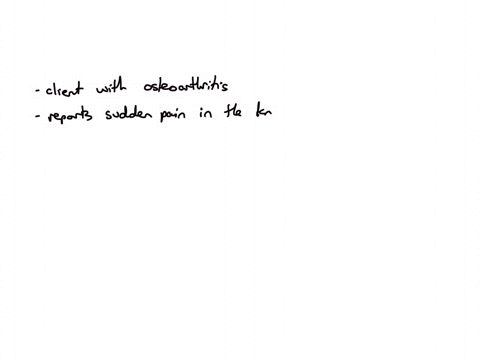 - client with osteoarthritis
- reports sudden pain in the kn